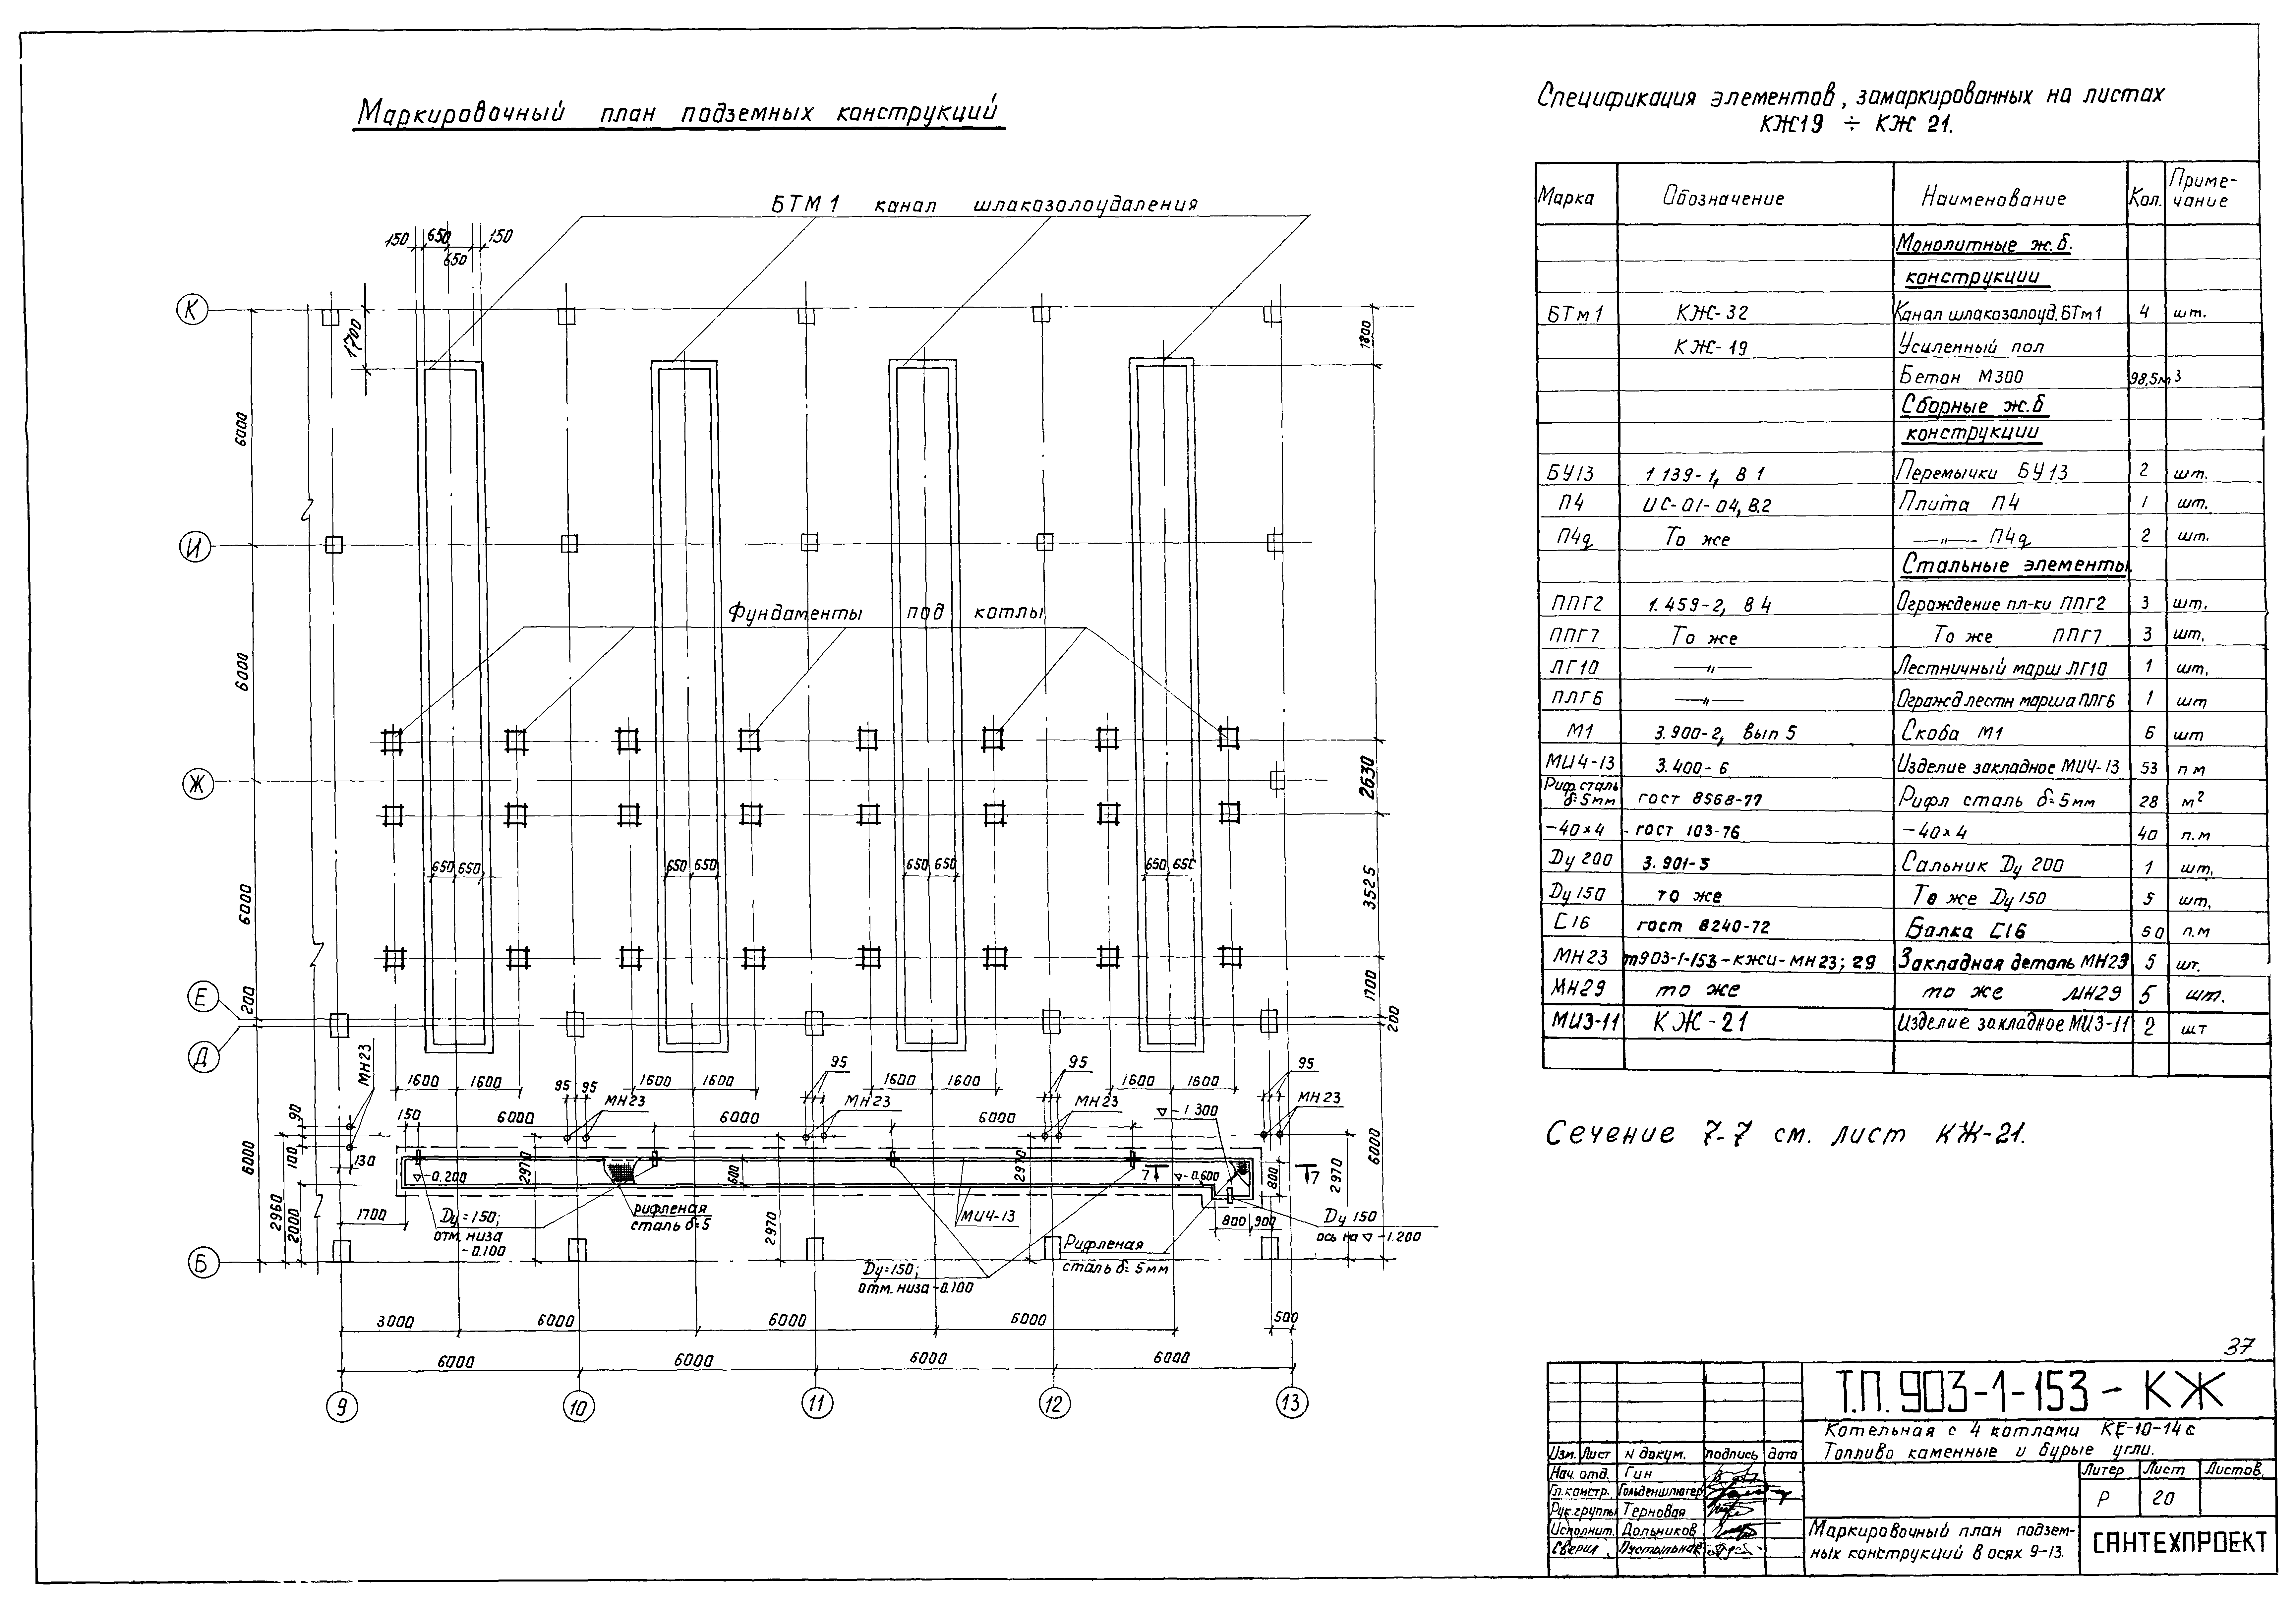 Маркировочный план подземных конструкций
Спецификация элементов, замаркированных на листах
КЖ19 ÷ КЖ 21.
БТМ1 канал шлакозолоудаления
150 650 650 150
К
1700
1800
6000
И
6000
Фундаменты под котлы
Ж
2630
6000
650 650 650 650 650 650 650 650
3525
Е
200
1700
200
Д
МН23
1600 1600 95 95 1600 1600 95 1600 1600 95 1600 1600 95
МН23 МН23 МН23 МН23
150 6000 6000 6000
▽-1 300
90
100
130
6000
2960
2000
2970
2970
2970
2970
6000
▽-0.200
600
7 7
▽-0.600
800
1700
Ду=150;
отм. низа
-0.100
рифленая
сталь δ=5
МИ4-13
800 900
Ду 150
ось на ▽-1.200
Рифленая
сталь δ=5мм
Ду=150;
отм. низа-0.100
Б
3000 6000 6000 6000 500
6000 6000 6000 6000
9 10 11 12 13
Марка Обозначение Наименование Кол. Приме-
чание
Монолитные ж.б.
конструкции
БТм1 КЖ-32 Канал шлакозолоуд.БТм1 4 шт.
КЖ-19 Усиленный пол
Бетон М300 98,5м3
Сборные ж.б
конструкции
БУ13 1 139-1, В 1 Перемычки БУ13 2 шт.
П4 ИС-01-04, В.2 Плита П4 1 шт.
П4д То же —"— П4д 2 шт.
Стальные элементы
ППГ2 1.459-2, В 4 Ограждение пл-ки ППГ2 3 шт.
ППГ7 То же То же ППГ7 3 шт.
ЛГ10 —"— Лестничный марш ЛГ10 1 шт.
ПЛГ6 —"— Огражд лестн марша ПЛГ6 1 шт
М1 3.900-2, вып 5 Скоба М1 6 шт
МИ4-13 3.400-6 Изделие закладное МИ4-13 53 п м
Риф. сталь
δ=5мм гост 8568-77 Рифл сталь δ=5мм 28 м²
-40×4 гост 103-76 -40×4 40 п.м
Ду 200 3.901-5 Сальник Ду 200 1 шт.
Ду 150 то же То же Ду 150 5 шт.
[16 гост 8240-72 Балка [16 50 п.м
МН23 т903-1-153-КЖИ-МН23; 29 Закладная деталь МН23 5 шт.
МН29 то же то же МН29 5 шт.
МИЗ-11 КЖ-21 Изделие закладное МИЗ-11 2 шт
Сечение 7-7 см. лист КЖ-21.
37
Т.П. 903-1-153-КЖ
Котельная с 4 котлами КЕ-10-14с
Топливо каменные и бурые угли.
Изм. Лист N докум. подпись дата
Нач. отд. Гин
Гл.констр. Гольденшлюгер
Рук.группы Терновая
Исполнит. Дольников
Сверил
Литер Лист Листов
Р 20
Маркировочный план подзем-
ных конструкций в осях 9-13.
САНТЕХПРОЕКТ